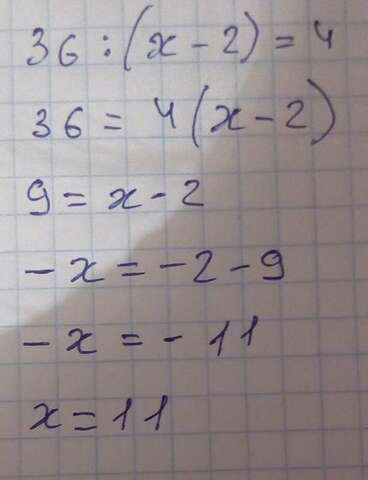 36 : (x - 2) = 4
36 = 4(x - 2)
9 = x - 2
- x = - 2 - 9
- x = - 11
x = 11